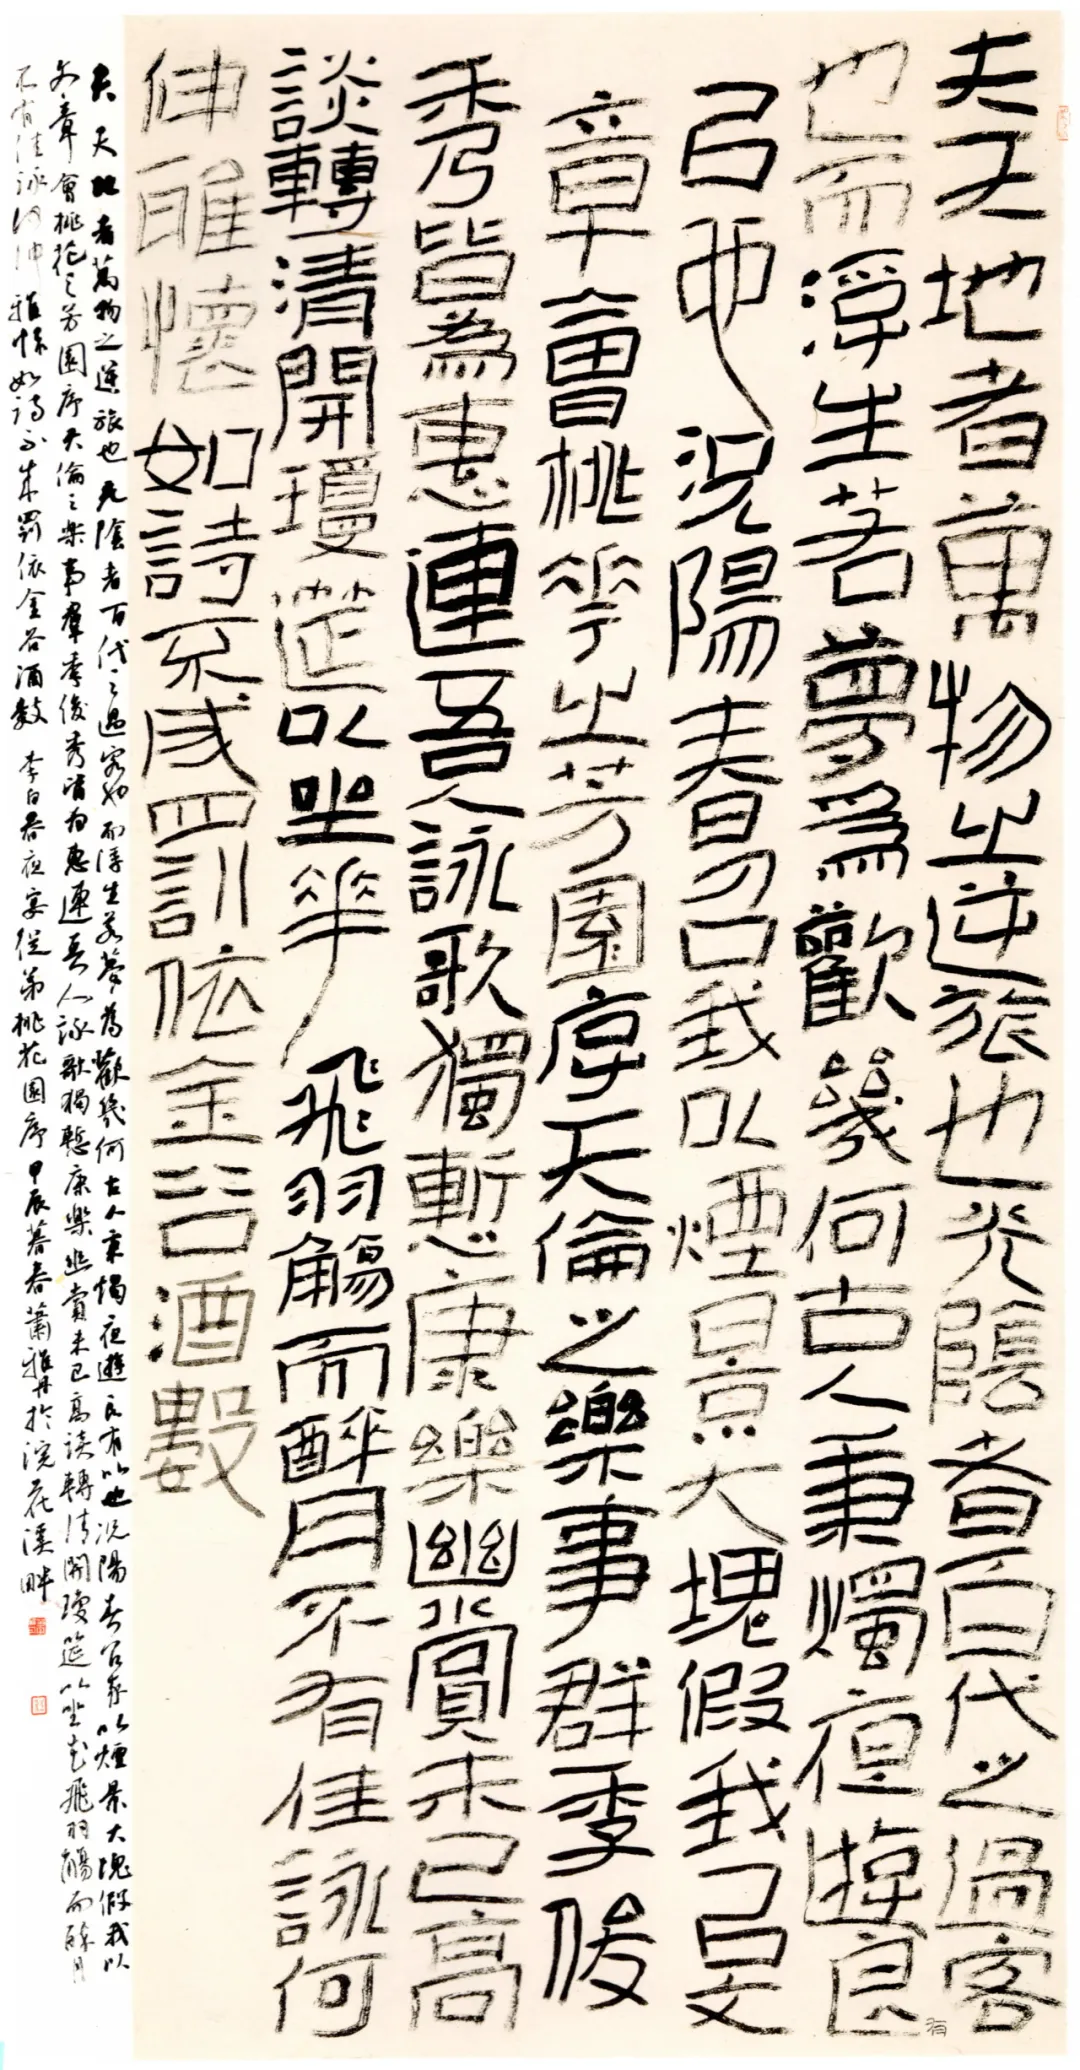 夫天地者萬物之逆旅也光陰者百代之過客
也而浮生若夢為歡幾何古人秉燭夜遊良有
㠯也況陽春召我以煙景大塊假我㠯文
章會桃花之芳園序天倫之樂事群季俊
秀皆為惠連吾人詠歌獨慙康樂幽賞未已高
談轉清開瓊筵以坐花飛羽觴而醉月不有佳詠何
伸雅懷如詩不成罰依金谷酒數
夫天地者萬物之逆旅也光陰者百代之過客也而浮生若夢為歡幾何古人秉燭夜遊良有以也況陽春召我以煙景大塊假我以
文章會桃花之芳園序天倫之樂事羣季俊秀皆為惠連吾人詠歌獨慙康樂幽賞未已高談轉清開瓊筵以坐花飛羽觴而醉月
不有佳詠何伸雅懷如詩不成罰依金谷酒數 李白春夜宴從弟桃花園序 甲辰暮春蕭雅丹於浣花溪畔